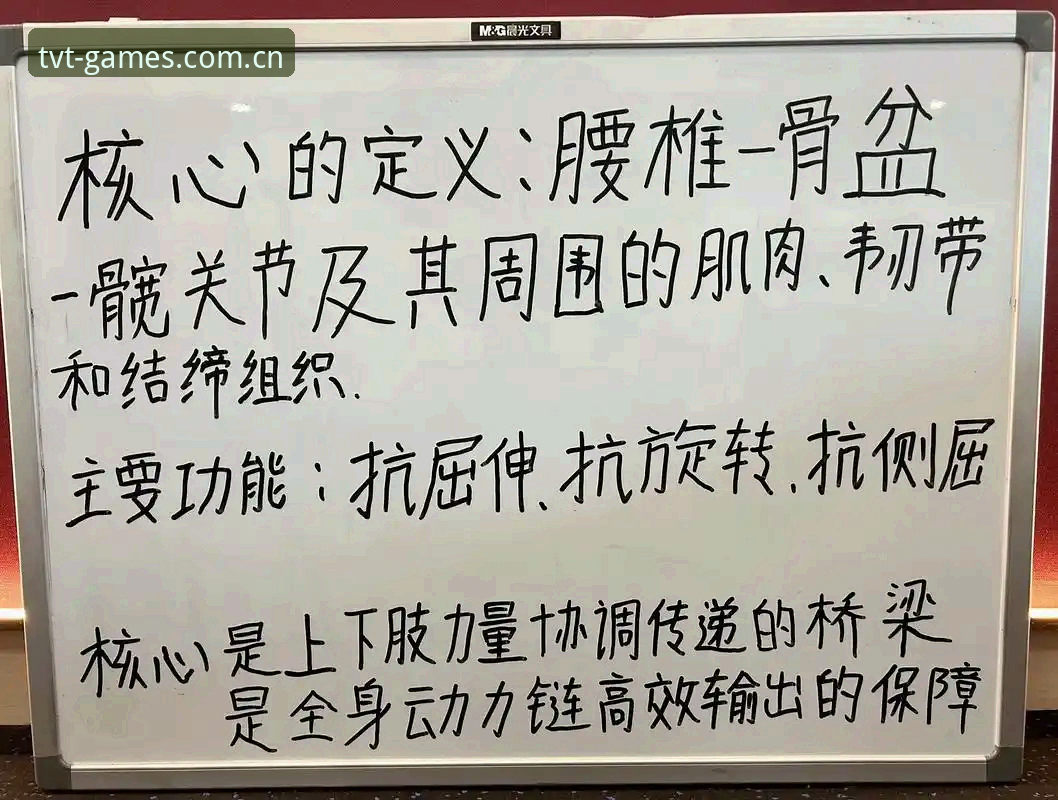 M&G晨光文具
tvt-games.com.cn
核心的定义:腰椎-骨盆
-髋关节及其周围的肌肉、韧带
和结缔组织.
主要功能:抗屈伸、抗旋转、抗侧屈
核心是上下肢力量协调传递的桥梁
是全身动力链高效输出的保障